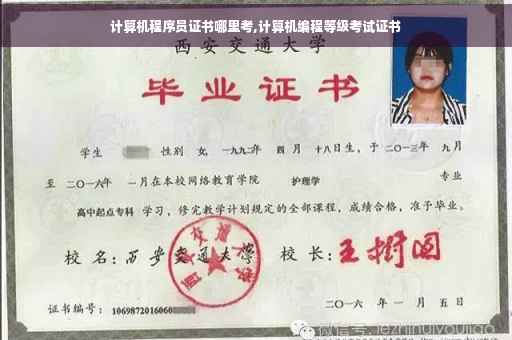 计算机程序员证书哪里考,计算机编程等级考试证书
西安交通大学
毕业证书
学生 性别 女, 一九九二年 四月 十八日生, 于 二〇一三年 九月
至 二〇一六年 一月在本校网络教育学院 护理学 专业
高中起点专科 学习, 修完教学计划规定的全部课程, 成绩合格, 准予毕业。
校名: 西安交通大学 校长: 王树国
西安交通大学
证书编号: 1069872016060
二〇一六年 一月 五日
微信号: jezhinuiyoujiao